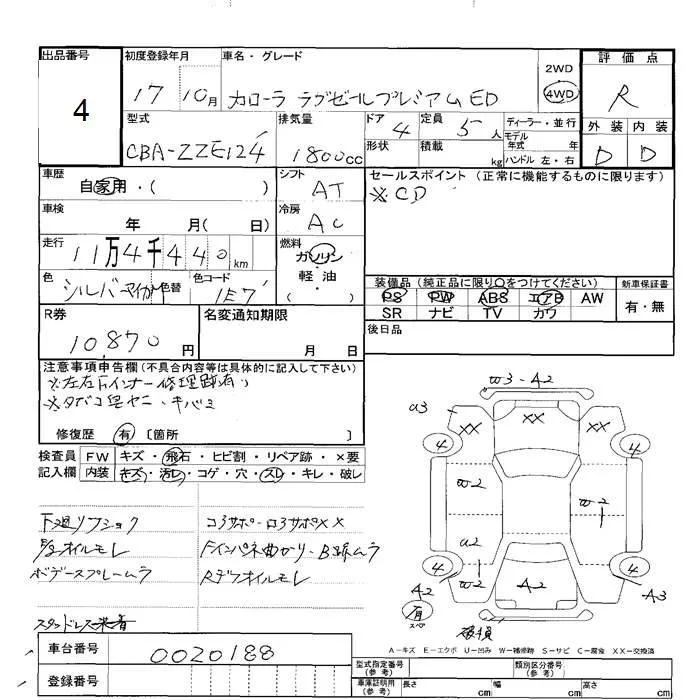 出品番号 初度登録年月 車名・グレード 2WD 評価点
4 17 10月 カローラ ラグゼールプレミアムED 4WD R
型式 排気量 ドア 定員 ディーラー・並行 外装 内装
CBA-ZZE124 1800cc 4 5人 モデル年式 年 D D
形状 積載 kg ハンドル 左・右
車歴 シフト セールスポイント (正常に機能するものに限ります)
自家用・( ) AT ※CD
車検 冷房
年 月( 日) AC
走行 燃料
11万4千440km ガソリン
色 色替 色コード 軽油
シルバーマイカM 1E7 ( )
装備品 (純正品に限り○をつけてください) 新車保証書
PS PW ABS エアB AW 有・無
SR ナビ TV カワ
R券 名変通知期限 後日品
10,870円 月 日
注意事項申告欄(不具合内容等は具体的に記入して下さい)
※左右Fインナー修理跡有り
※タバコ臭ヤニ・キバミ
修復歴 有 〔箇所 〕
検査員 FW キズ・飛石・ヒビ割・リペア跡・×要
記入欄 内装 キズ・汚レ・コゲ・穴・スレ・キレ・破レ
下廻リフショク コアサポ-ロアサポ××
E/gオイルモレ Fインパネ曲がり-B跡ムラ
ボデースプレームラ Rデフオイルモレ
スタッドレス来着
W3-A2
a3
XX XX
4 4
W-2 W-2
a2
4 4
A2 W-2 A2 A3
有
スペ
破損
A-キズ E-エクボ U-凹み W-補修跡 S-サビ C-腐食 XX-交換済
車台番号 0020188
登録番号
型式指定番号(参考) 類別区分番号(参考)
車庫証明用(参考) 長さ cm 幅 cm 高さ cm